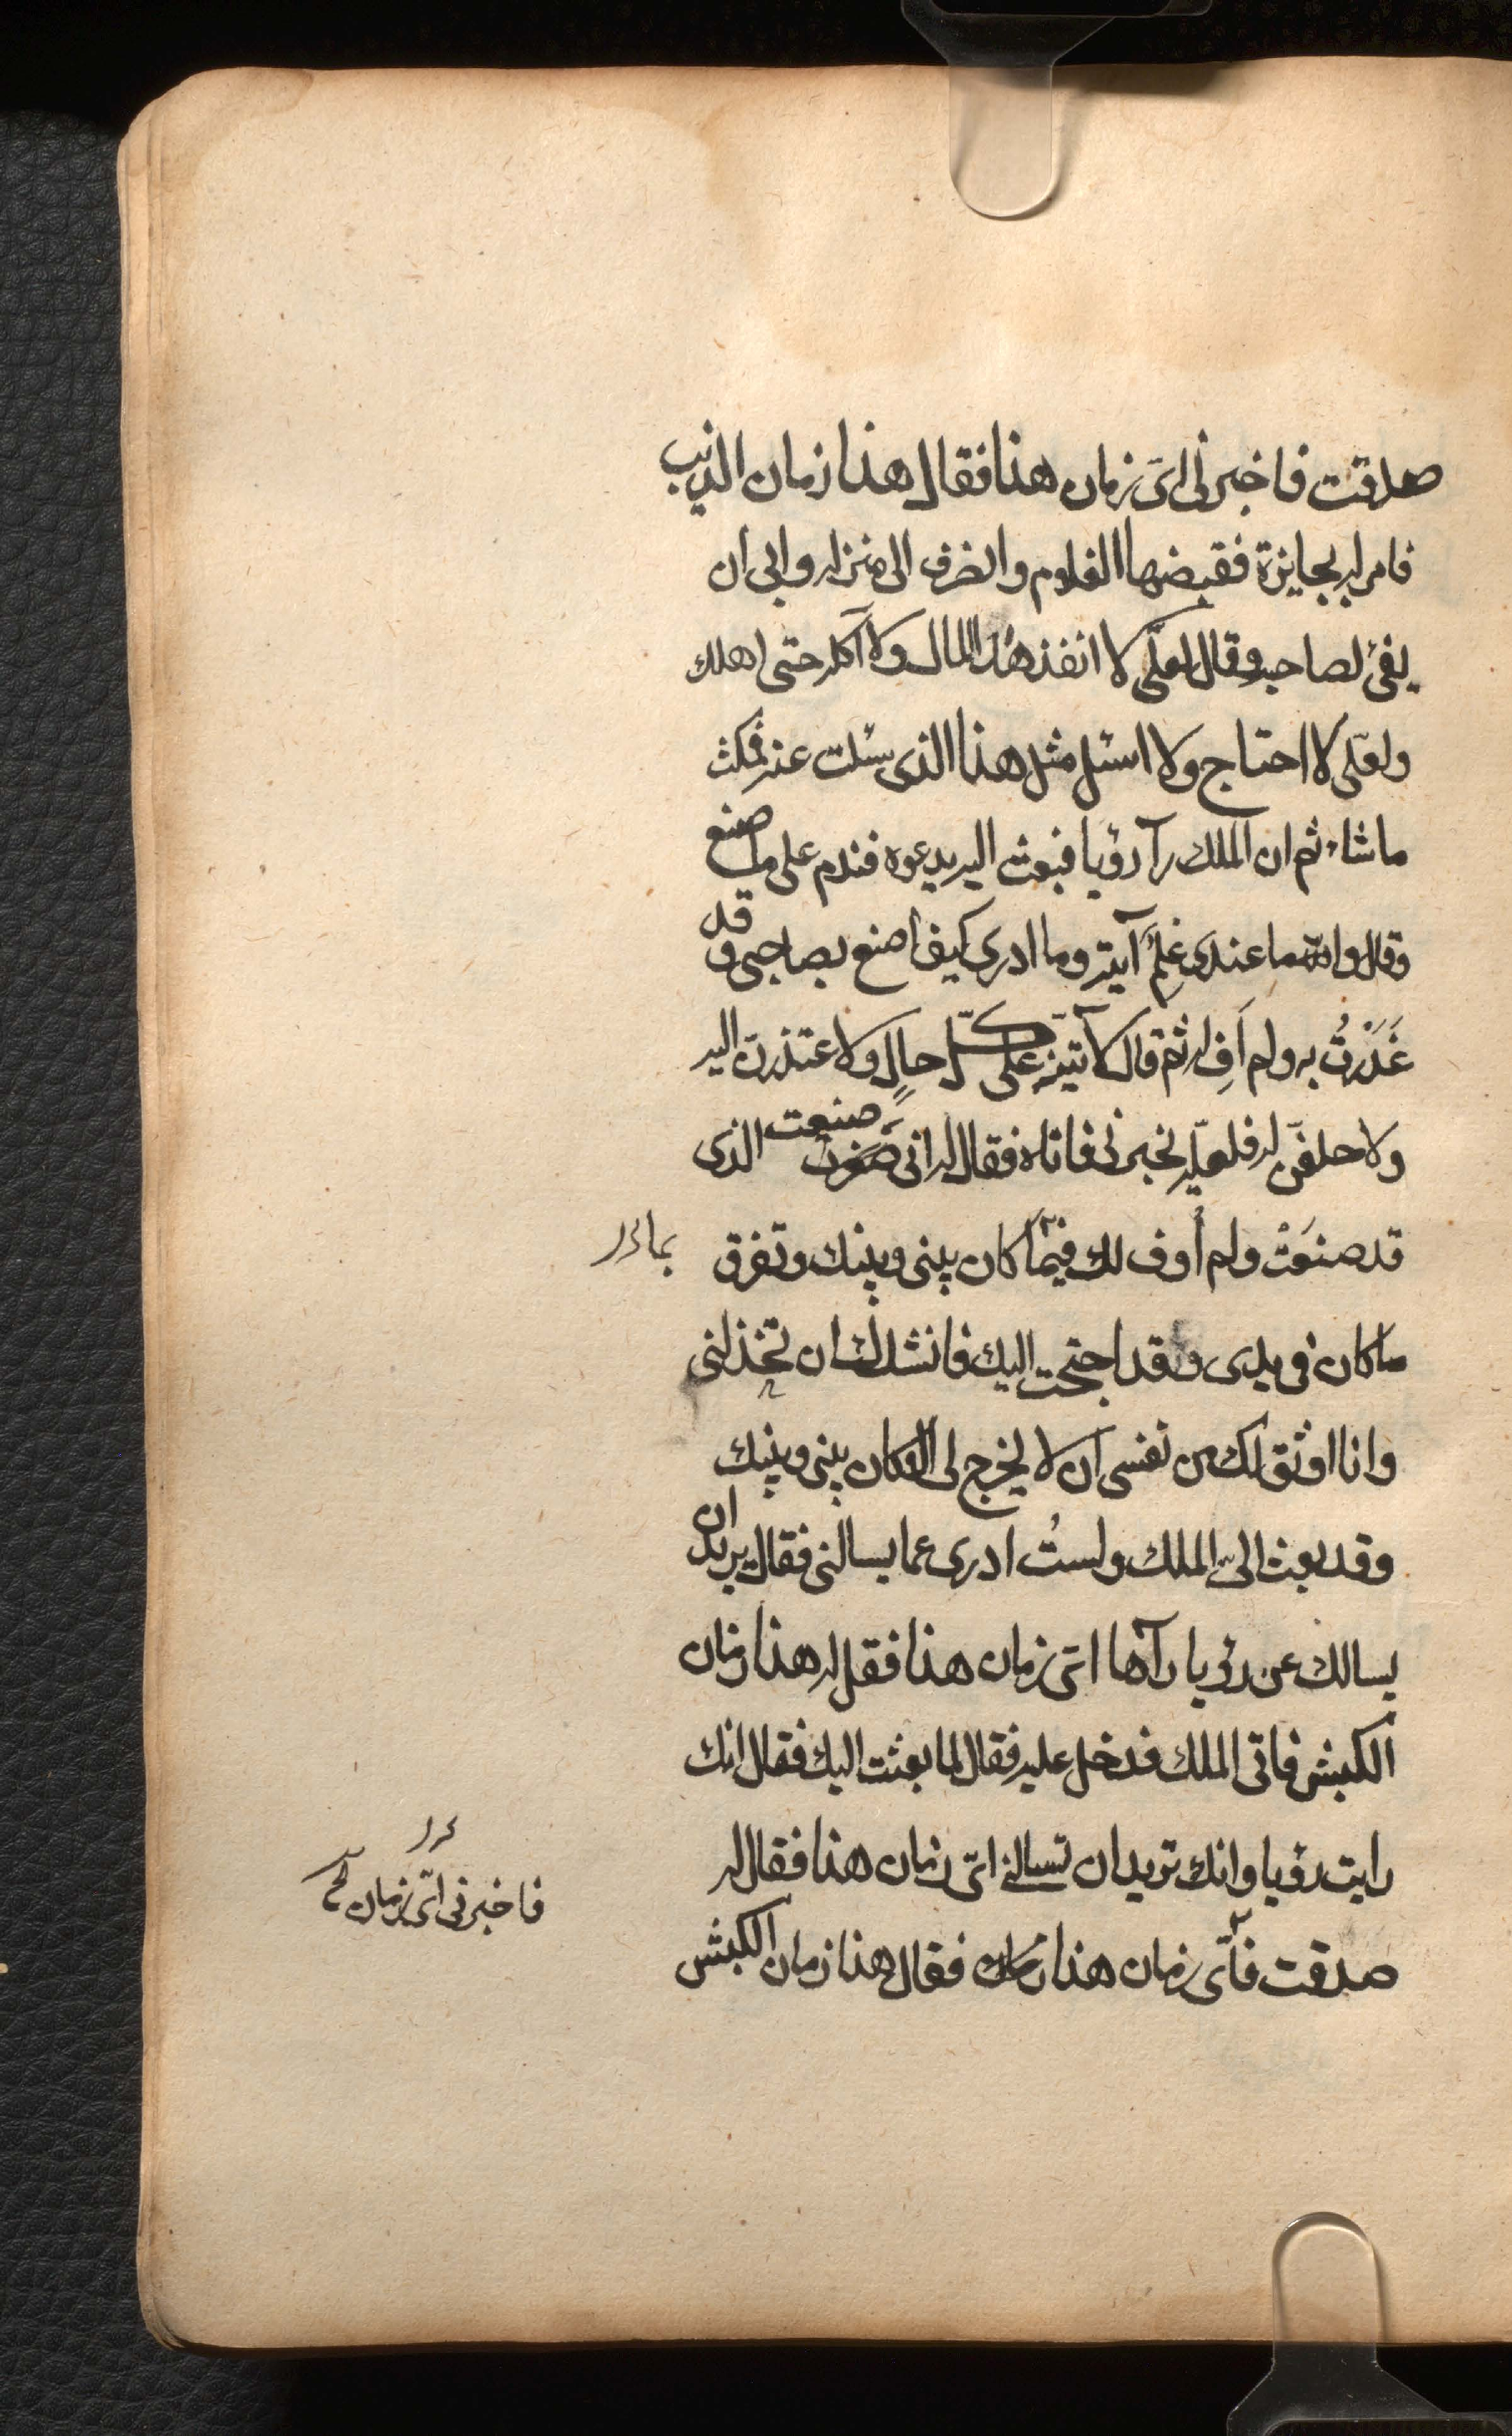 صدقت فاخبرنى اىّ زمان هذا فقال هذا زمان الذئب
فامر له بجايزة فقبضها الغلام وانصرف الى منزله وابى ان
يفئ لصاحبه وقال لعلّى لا انفذ هذا المال ولا آكله حتى اهلك
ولعلى لا احتاج ولا اسئل مثل هذا الذى سئلت عنه فمكث
ماشاء ثم ان الملك رآ رؤيا فبعث اليه يدعوه فندم على ما صنع
وقال والله ما عندى علمٌ آيته وما ادرى كيف اصنع بصاحبى وقد
غَدَرْتُ به ولم اَفِ له ثم قال لآتينّه على كلّ حالٍ ولاعتذرن اليه
ولاحلفنّ له فلعلّه يخبرنى فاتاه فقال له انى صنعت الذى
قد صنعَتْ ولم أوف لك فيما كان بينى وبينك وتفرق
بما
ماكان فى يدى وقد احتجت اليك فانشدك ان تخذلنى
وانا اوثق لك من نفسى ان لا يخرج لى الا كان بينى وبينك
وقد بعث الىّ الملك ولستُ ادرى عما يسالنى فقال يريد ان
يسالك عن رؤيا رآها اىّ زمان هذا فقل له هذا زمان
الكبش فاتى الملك فدخل عليه فقال لما بعثت اليك فقال انك
رايت رؤيا وانك تريد ان تسالنى اىّ زمان هذا فقال له
فاخبرنى اىّ زمان
صدقت فاىّ زمان هذا فقال هذا زمان الكبش